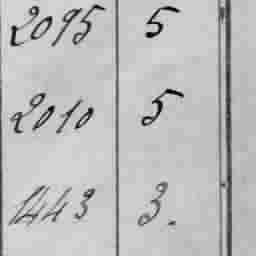 2095 5
2010 5
1443 3.